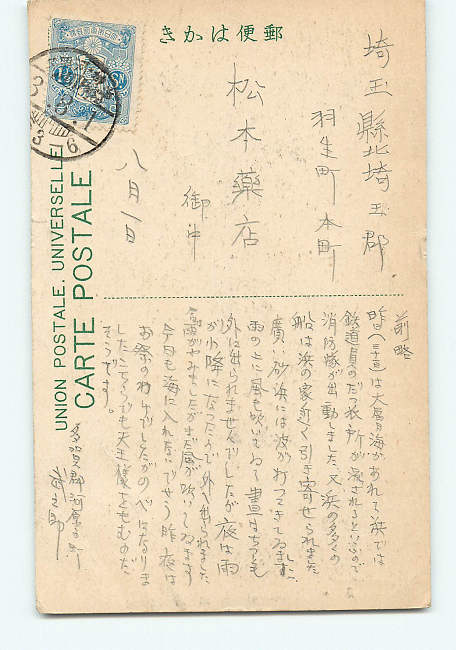 きかはは便郵
UNION POSTALE UNIVERSELLE
CARTE POSTALE
埼玉縣北埼玉郡
羽生町本町
松本藥店
御中
八月一日
前略
昨日(三十一日)は大暴風海があれて浜では
鉄道員のだつ衣所が流されるといふので
消防隊が出動しました、又浜の多くの
船は浜の家近く引き寄せられました
廣い砂浜には波が打つてきてゐました。
雨の上に風も吹いてゐて晝はちつとも
外に出られませんでしたが夜は雨
が小降になつたので外へ出られました
今日は雨がやみましたがまだ風が吹いてゐます
今日も海に入れないでせう 昨夜は
お祭のわけでしたがのべになりま
した こちらでも天王様をせむのだ
さうです。